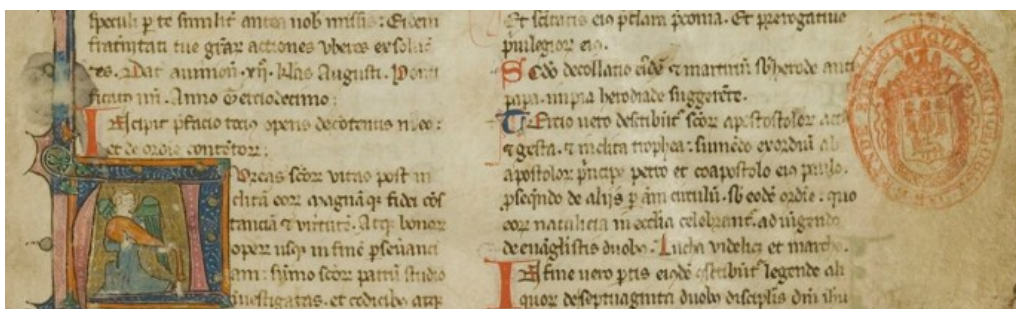 speculi p te similit antea nob missis: Eidem
fratnitati tue grar actiones vberes exsolue
tes. Dat auinion. xii. klas Augusti. Ponti
ficatꝰ nri. Anno tertiodecimo:
Incipit pfacio tociꝰ operis
et de ordie contentor:
scor vitas post in
clitā eor magnāqꝫ fidei cōs
tanciā ⁊ virtutē. Atqꝫ bonor
oper usqꝫ in finē pseuanci
am: scor patrū studio
inuestigatas. et codicibꝰ atqꝫ
Et scitatis eiꝰ pclara pconia. Et prerogatiuo
puilegior eiꝰ.
Scdo decollatio eiꝰdē ⁊ martiriū sb herode anti
papa. impia herodiade suggerēte.
Tercio uero describūt scor apostostolor act
⁊ gesta. ⁊ inclita trophea: sumēdo exordiū ab
apostolor pncipe petro et coapostolo eiꝰ paulo.
pseqndo de alijs p circulū. sb eodē ordie: quo
eor natalicia in ecclia celebrant. adiūgendo
de euāglistis duobꝰ. Lucha videlicꝫ et marcho.
In fine uero ptis eiꝰdē legende ali
quor de septuaginta duobꝰ discipl'is dni ihu